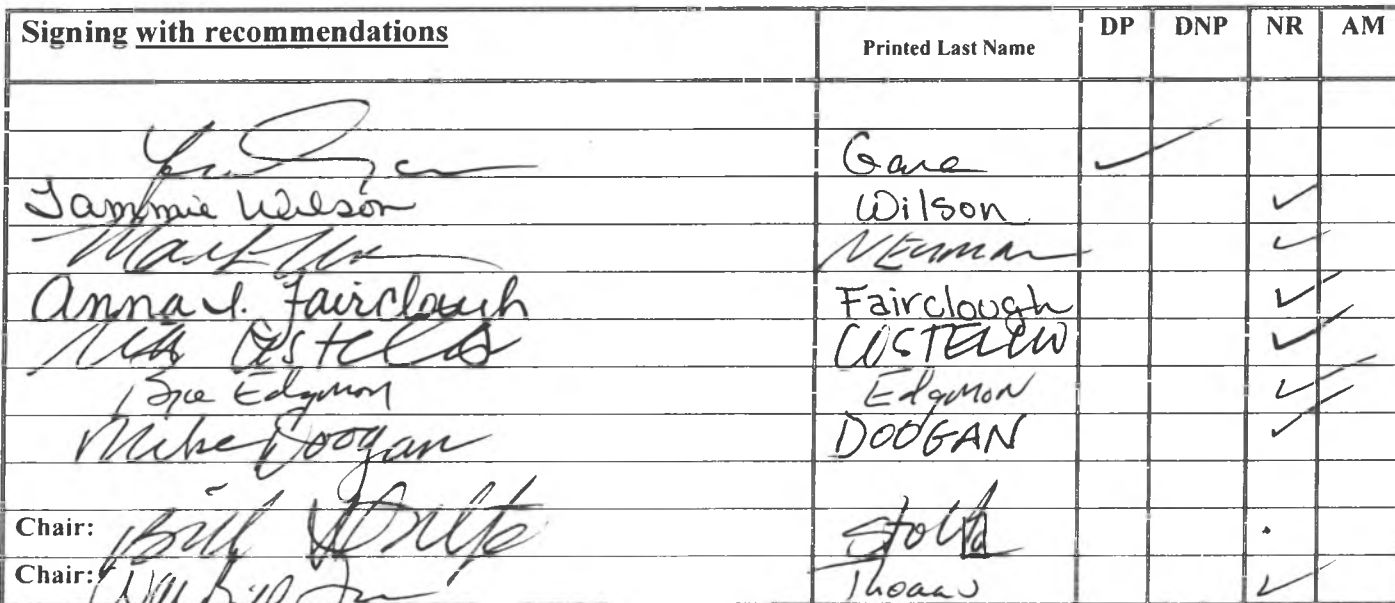 Signing with recommendations Printed Last Name DP DNP NR AM
Gara ✓
Tammie Wilson Wilson ✓
Mark Neuman ✓
Anna I. Fairclough Fairclough ✓
Costello COSTELLO ✓
Bryce Edgmon Edgmon ✓
Mike Doogan DOOGAN ✓
Chair: Bill Stoltze Stoltze
Chair: Thomas ✓